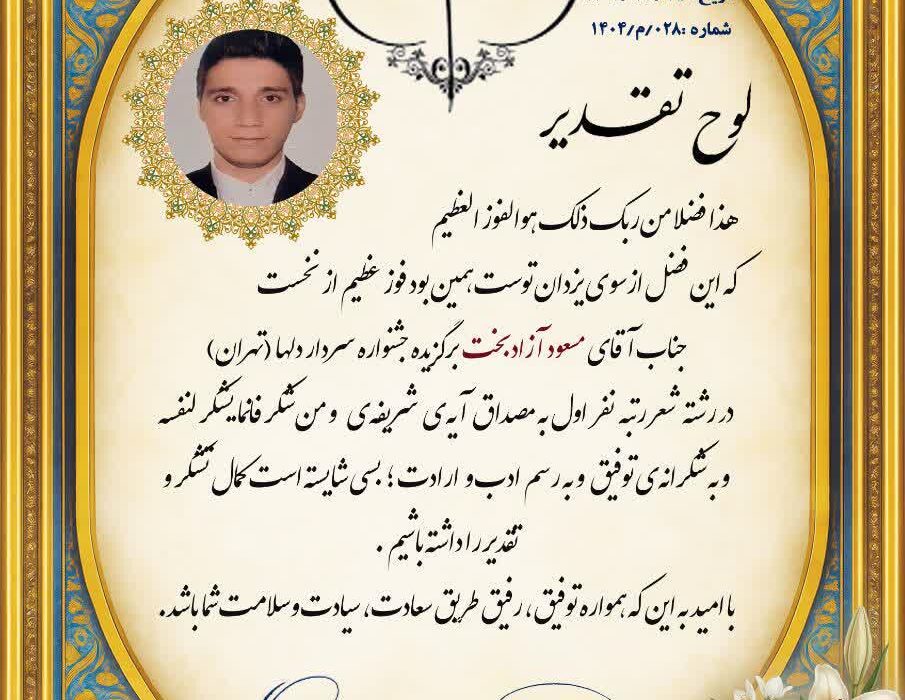 شماره :۰۲۸/م/۱۴۰۴
لوح تقدیر
هذا فضلا من ربک ذلک هو الفوز العظیم
که این فضل از سوی یزدان توست همین بود فوز عظیم از نخست
جناب آقای مسعود آزادبخت برگزیده جشنواره سردار دلها (تهران)
در رشته شعر رتبه نفر اول به مصداق آیه‌ی شریفه‌ی ومن شکر فانما یشکر لنفسه
وبه شکرانه‌ی توفیق وبه رسم ادب و ارادت؛ بسی شایسته است کمال تشکر و
تقدیر را داشته باشیم .
با امید به این که همواره توفیق، رفیق طریق سعادت، سیادت وسلامت شما باشد.